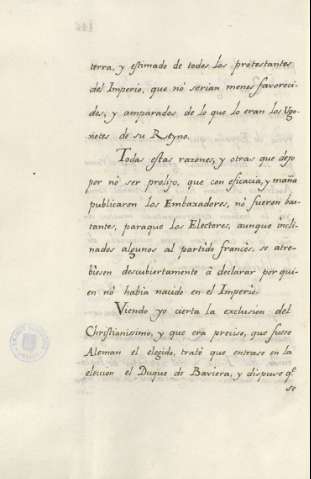 terra, y estimado de todos los protestantes
del Imperio, que nò serian menos favoreci-
dos, y amparados de lo que lo eran los Ugo-
notes de su Reyno.
Todas estas razones, y otras que dejo
por nò ser prolijo, que con eficacia, y maña
publicaron los Embaxadores, nò fueron bas-
tantes, paraque los Electores, aunque incli-
nados algunos al partido francès, se atre-
biesen descubiertamente à declarar por qui-
en nò habia nacido en el Imperio.
Viendo yo cierta la exclusion del
Christianisimo, y que era preciso, que fuese
Aleman el elegido, tratè que entrase en la
eleccion el Duque de Baviera, y dispuse qe
se